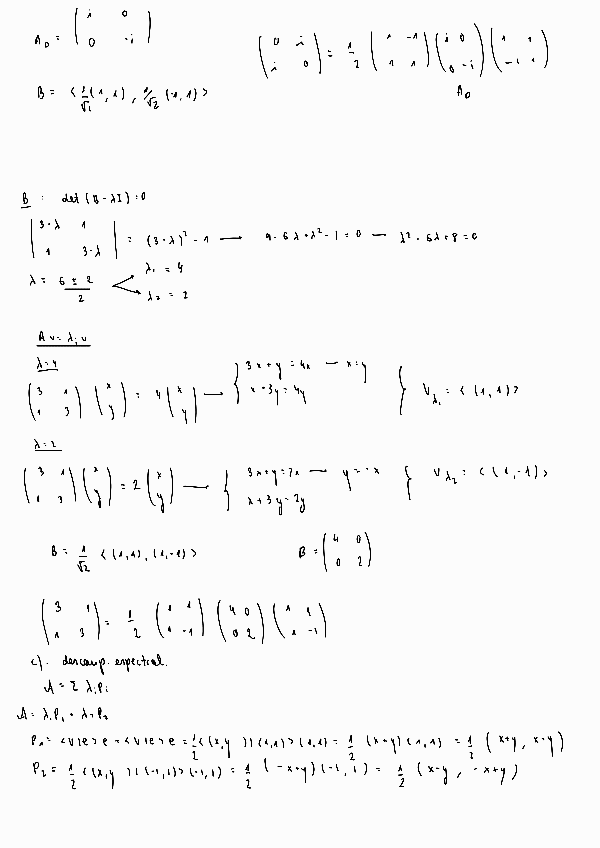 A_D = ( i 0 ; 0 -i )
( 0 i ; i 0 ) = 1/2 ( 1 -1 ; 1 1 ) ( i 0 ; 0 -i ) ( 1 1 ; -1 1 )
A_D
B = < 1/√2 (1,1), 1/√2 (-1,1) >
B : det (B - λI) = 0
| 3-λ 1 ; 1 3-λ | = (3-λ)² - 1 → 9 - 6λ + λ² - 1 = 0 → λ² - 6λ + 8 = 0
λ = (6 ± 2)/2
λ₁ = 4
λ₂ = 2
A v = λ₁ v
λ=4
( 3 1 ; 1 3 ) ( x ; y ) = 4 ( x ; y ) → { 3x + y = 4x → x = y ; x + 3y = 4y } V_λ₁ = < (1,1) >
λ=2
( 3 1 ; 1 3 ) ( x ; y ) = 2 ( x ; y ) → { 3x + y = 2x → y = -x ; x + 3y = 2y } V_λ₂ = < (1,-1) >
B = 1/√2 < (1,1), (1,-1) > B = ( 4 0 ; 0 2 )
( 3 1 ; 1 3 ) = 1/2 ( 1 1 ; 1 -1 ) ( 4 0 ; 0 2 ) ( 1 1 ; 1 -1 )
c). descomp. espectral.
A = Σ λᵢPᵢ
A = λ₁P₁ + λ₂P₂
P₁ = <v|e>e = <v|e>e = 1/2 <(x,y)|(1,1)>(1,1) = 1/2 (x+y)(1,1) = 1/2 (x+y, x+y)
P₂ = 1/2 <(x,y)|(-1,1)>(-1,1) = 1/2 (-x+y)(-1,1) = 1/2 (x-y, -x+y)